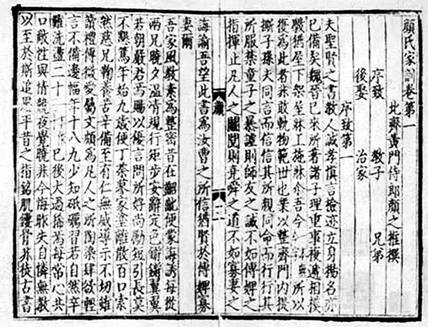 顏氏家訓卷第一
北齊黃門侍郎顏之推撰
序致 教子 兄弟
後娶 治家
序致第一
夫聖賢之書教人誠孝慎言檢迹立身揚名亦
已備矣魏晉已來所著諸子理重事複遞相模
斅猶屋下架屋牀上施牀耳吾今所以
復為此者非敢軌物範世也業以整齊門內提
撕子孫夫同言而信信其所親同命而行行其
所服禁童子之暴謔則師友之誡不如傅婢之
指揮止凡人之鬬鬩則堯舜之道不如寡妻之
誨諭吾望此書為汝曹之所信猶賢於傅婢寡
妻爾
吾家風教素為整密昔在齠齔便蒙誨誘每從
兩兄曉夕溫凊規行矩步安辭定色鏘鏘翼翼
若朝嚴君焉賜以優言問所好尚勵短引長莫
不懇篤年始九歲便丁荼蓼家塗離散百口索
然慈兄鞠養苦辛備至有仁無威導示不切雖
讀禮傳微愛屬文頗為凡人之所陶染肆欲輕
言不備邊幅年十八九少知砥礪習若自然卒
難洗盪二十已後大過稀焉每常心共
口敵性與情競夜覺曉非今悔昨失自憐無教
以至於斯追思平昔之指銘肌鏤骨非徒古書